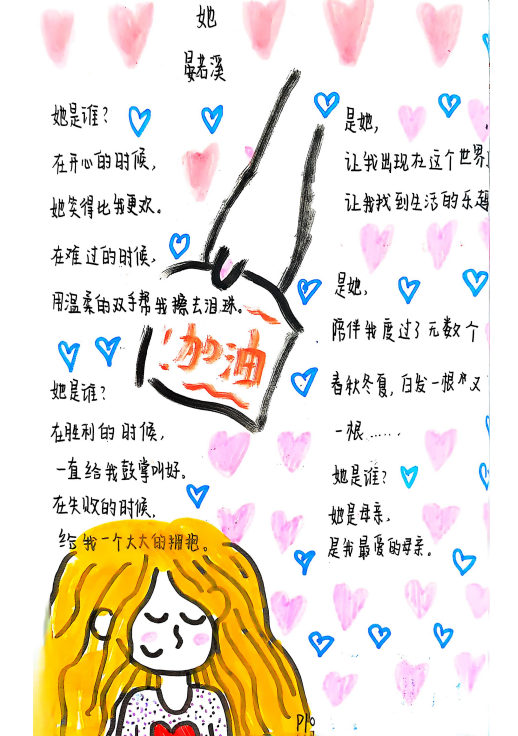 她
晏若溪
她是谁？
在开心的时候，
她笑得比我更欢。
在难过的时候，
用温柔的双手帮我擦去泪珠。
她是谁？
在胜利的时候，
一直给我鼓掌叫好。
在失败的时候，
给我一个大大的拥抱。
！加油
是她，
让我出现在这个世界
让我找到生活的乐趣
是她，
陪伴我度过了无数个
春秋冬夏，白发一根又
一根……
她是谁？
她是母亲，
是我最爱的母亲。